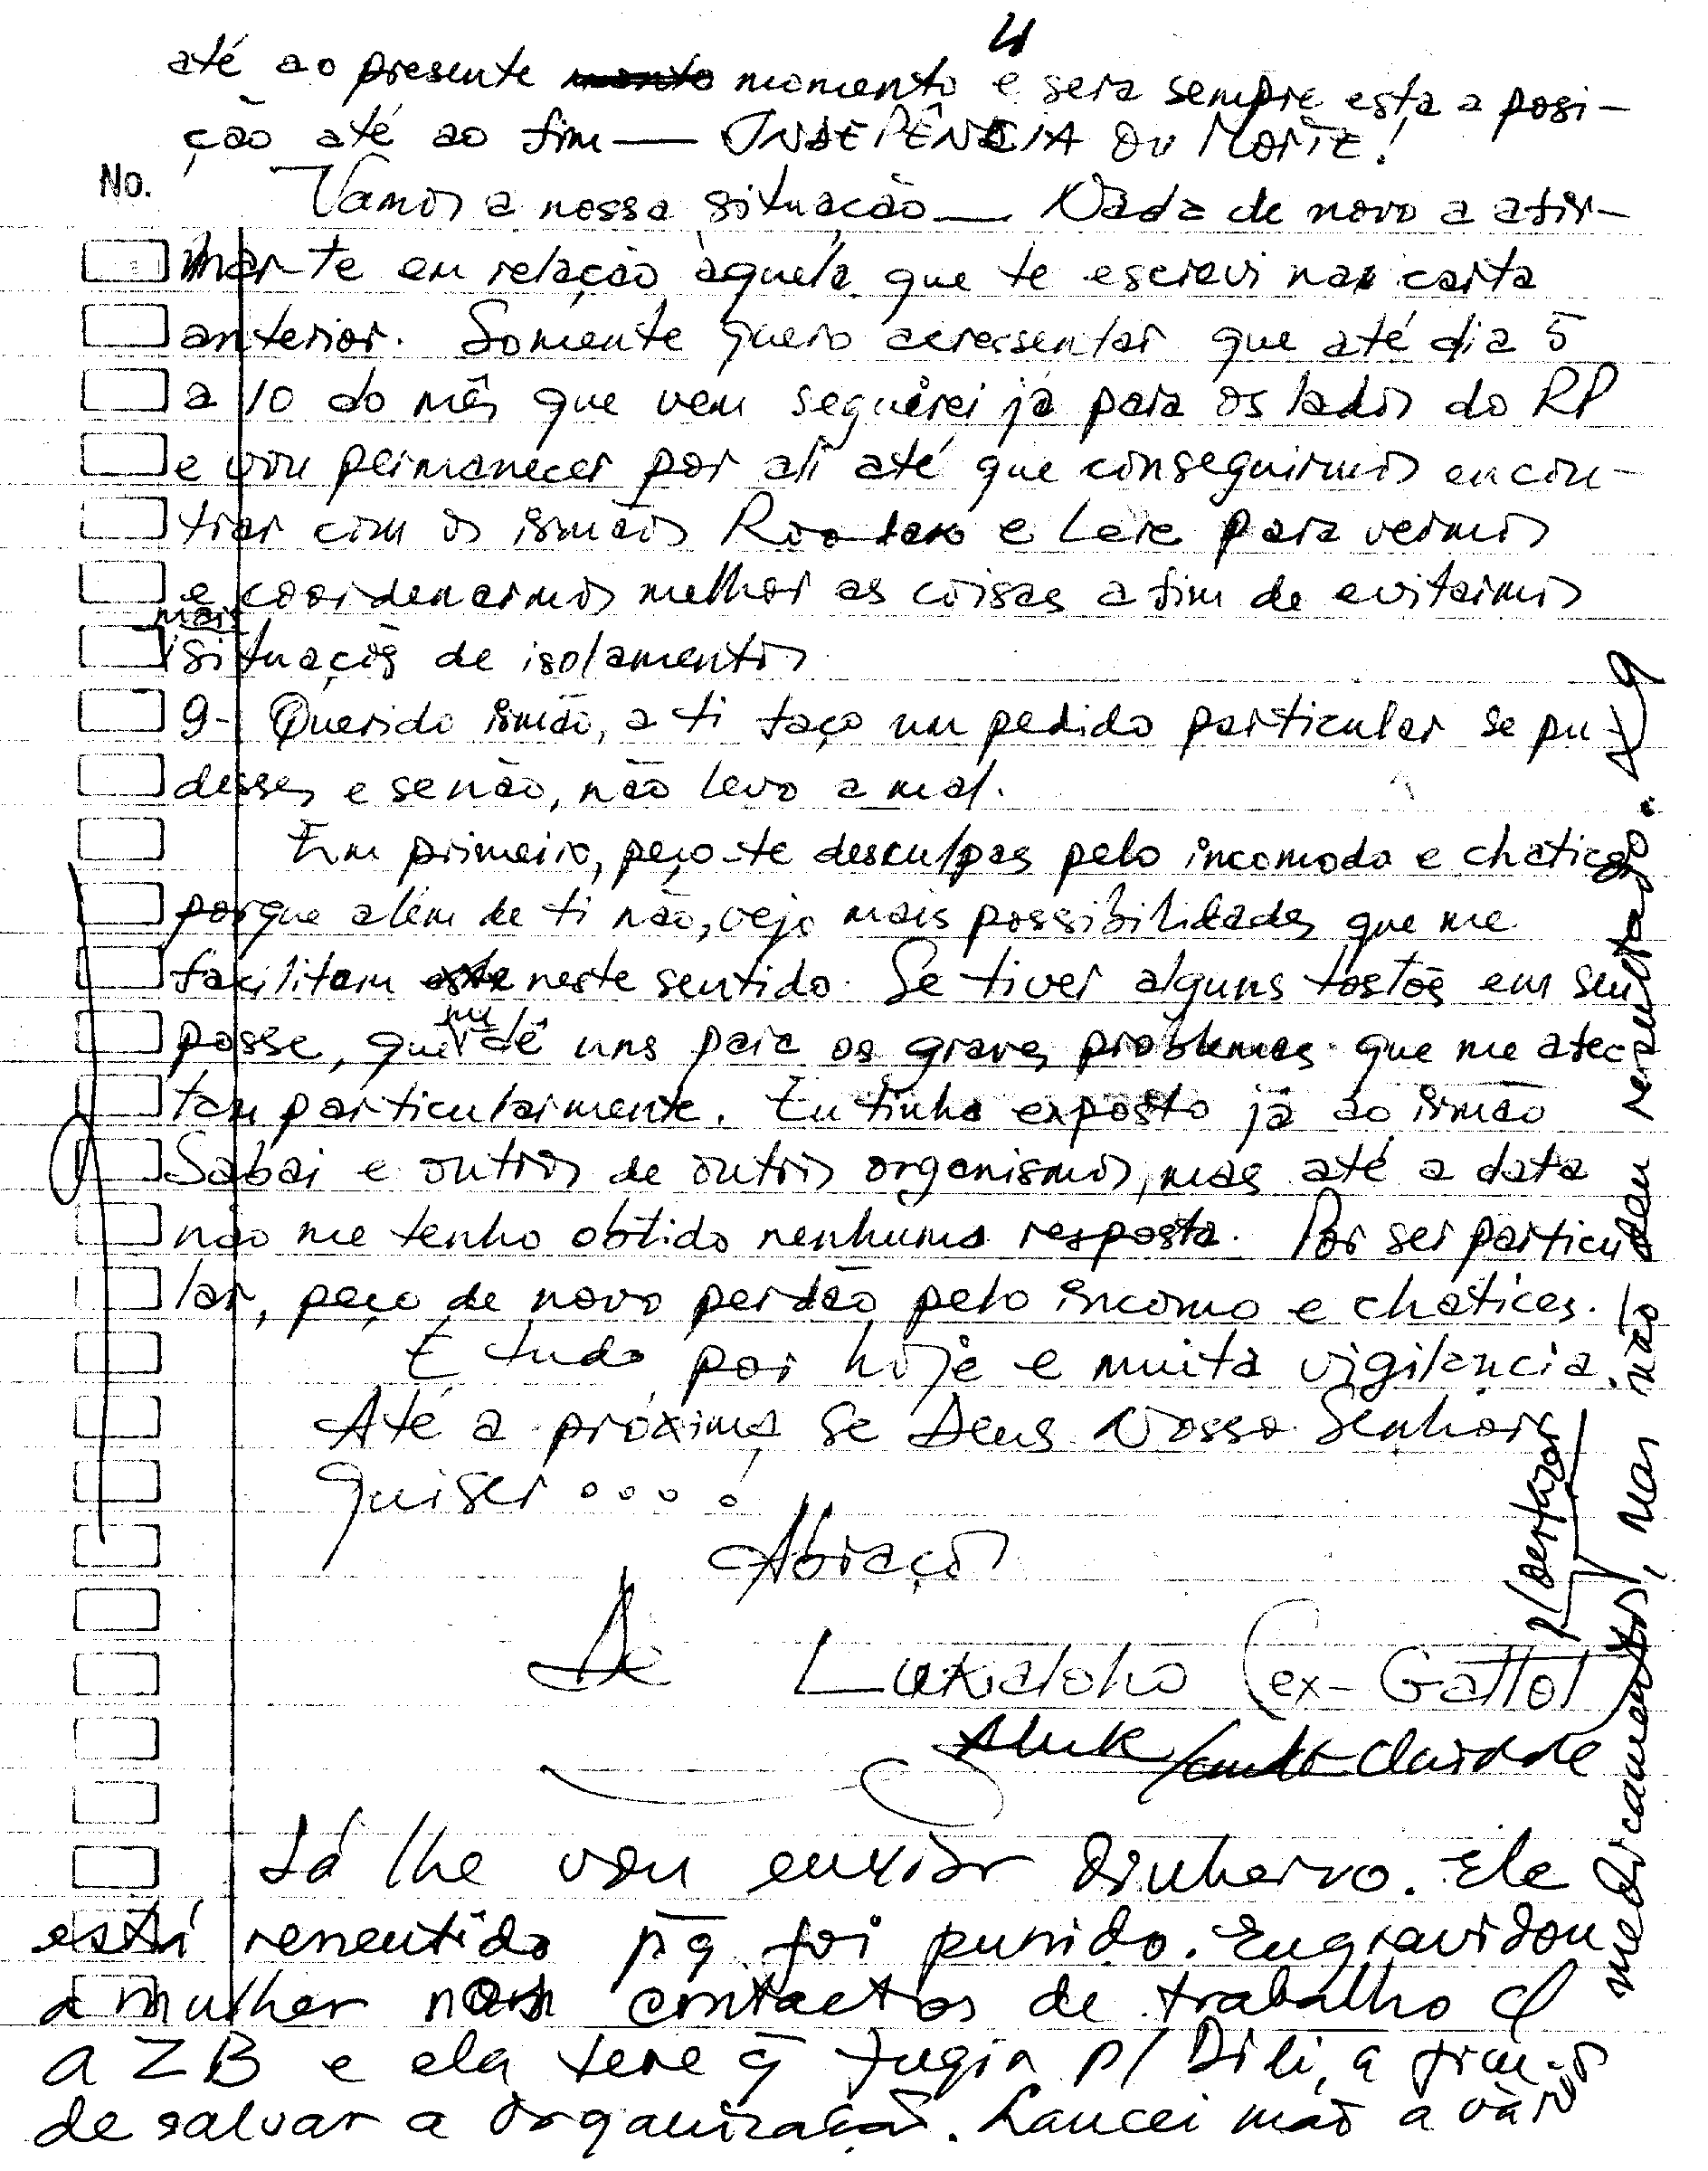 4
até ao presente momento e sera sempre esta a posi-
ção até ao fim — INDEPÊNCIA OU MORTE!
No.
Vamos a nossa situação — Nada de novo a afir-
mar-te em relação àquela que te escrevi na carta
anterior. Somente quero acressentar que até dia 5
a 10 do mês que vem seguirei já para os lados do RP
e vou permanecer por ali até que conseguirmos encon-
trar com os irmãos e Lere para vermos
e coordenarmos melhor as coisas a fim de evitarmos
mais
situaçõs de isolamentos
9- Querido irmão, a ti faço um pedido particular se pu-
desses e senão, não levo a mal.
Em primeiro, peço-te desculpas pelo incomodo e chatices
porque além de ti não, vejo mais possibilidades que me
facilitam neste sentido. Se tiver alguns tostõs em seu
posse, que me dê uns para os graves problemas que me afec-
tam particularmente. Eu tinha exposto já ao irmão
Sabai e outros de outros organismos, mas até a data
não me tenho obtido nenhuma resposta. Por ser particu
lar, peço de novo perdão pelo incomo e chatices.
É tudo por hoje e muita vigilância.
Até a próxima, se Deus Nosso Senhor
quiser . . . . !
Abraços
De Lukaloho (ex-Gattot
Já lhe vou enviar dinheiro. Ele
está ressentido pq foi punido. Engravidou
a mulher nos contactos de trabalho c/
a ZB e ela teve q̄ fugir p/ Dili, a fim
de salvar a organização. Lancei mão a vários
medicamentos, mas não deu resultado.
p/ abortar